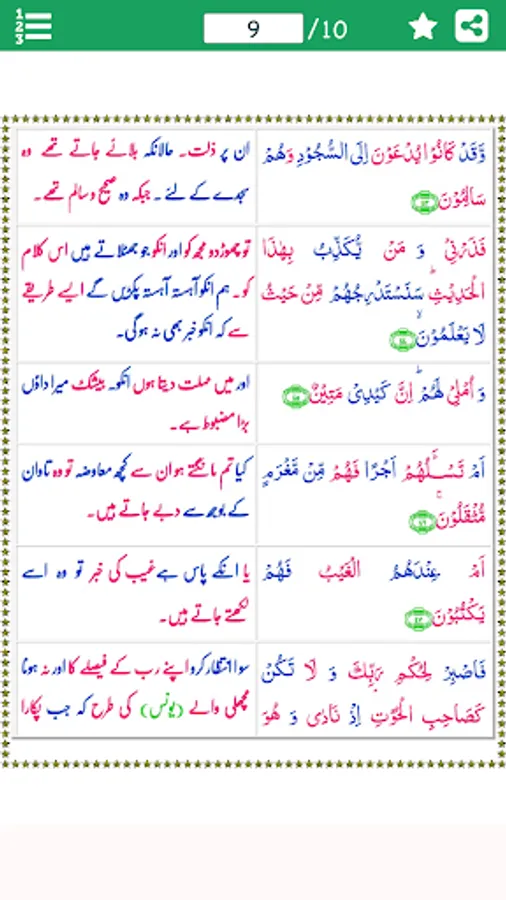 1
2
3
9 /10
وَّقَدْ كَانُوْا يُدْعَوْنَ اِلَى السُّجُوْدِ وَهُمْ
سَالِمُوْنَ
ان پر ذلت۔ حالانکہ بلائے جاتے تھے وہ
سجدے کے لئے۔ جبکہ وہ صحیح و سالم تھے۔
فَذَرْنِيْ وَ مَنْ يُّكَذِّبُ بِهٰذَا
الْحَدِيْثِ ؕ سَنَسْتَدْرِجُهُمْ مِّنْ حَيْثُ
لَا يَعْلَمُوْنَ ۙ
تو چھوڑ دو مجھ کو اور انکو جو جھٹلاتے ہیں اس کلام
کو۔ ہم انکو آہستہ آہستہ پکڑیں گے ایسے طریقے
سے کہ انکو خبر بھی نہ ہوگی۔
وَ اُمْلِيْ لَهُمْ ؕ اِنَّ كَيْدِيْ مَتِيْنٌ
اور میں مہلت دیتا ہوں انکو۔ بیشک میرا داؤں
بڑا مضبوط ہے۔
اَمْ تَسْـَٔلُهُمْ اَجْرًا فَهُمْ مِّنْ مَّغْرَمٍ
مُّثْقَلُوْنَ ۚ
کیا تم مانگتے ہو ان سے کچھ معاوضہ تو وہ تاوان
کے بوجھ سے دبے جاتے ہیں۔
اَمْ عِنْدَهُمُ الْغَيْبُ فَهُمْ
يَكْتُبُوْنَ
یا انکے پاس ہے غیب کی خبر تو وہ اسے
لکھتے جاتے ہیں۔
فَاصْبِرْ لِحُكْمِ رَبِّكَ وَ لَا تَكُنْ
كَصَاحِبِ الْحُوْتِ ۘ اِذْ نَادٰى وَ هُوَ
سو انتظار کرو اپنے رب کے فیصلے کا اور نہ ہونا
مچھلی والے (یونس) کی طرح کہ جب پکارا